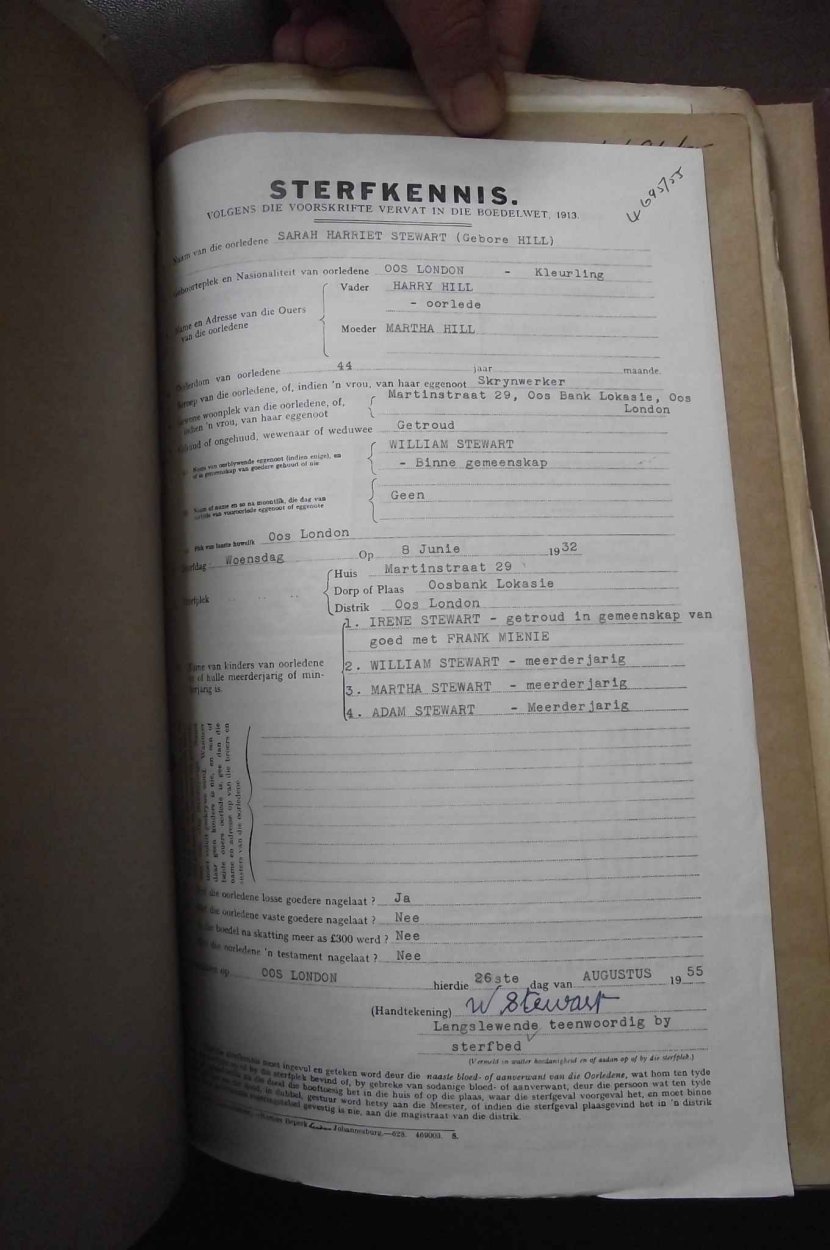 695/55
STERFKENNIS.
VOLGENS DIE VOORSKRIFTE VERVAT IN DIE BOEDELWET, 1913.
Naam van die oorledene SARAH HARRIET STEWART (Gebore HILL)
Geboorteplek en Nasionaliteit van oorledene OOS LONDON - Kleurling
Vader HARRY HILL
- oorlede
Name en Adresse van die Ouers
van die oorledene
Moeder MARTHA HILL
Ouderdom van oorledene 44 jaar maande.
Beroep van die oorledene, of, indien 'n vrou, van haar eggenoot Skrynwerker
Gewone woonplek van die oorledene, of, Martinstraat 29, Oos Bank Lokasie, Oos
indien 'n vrou, van haar eggenoot London
of ongehuud, wewenaar of weduwee Getroud
Naam van oorblywende eggenoot (indien enige), en WILLIAM STEWART
of in gemeenskap van goedere gehuud of nie - Binne gemeenskap
Naam of name en so na moontlik, die dag van Geen
van vooroorlede eggenoot of eggenote
Plek van laaste huwelik Oos London
Sterfdag Woensdag Op 8 Junie 1932
Huis Martinstraat 29
Sterfplek Dorp of Plaas Oosbank Lokasie
Distrik Oos London
1. IRENE STEWART - getroud in gemeenskap van
goed met FRANK MIENIE
Name van kinders van oorledene
of hulle meerderjarig of min-
derjarig is.
2. WILLIAM STEWART - meerderjarig
3. MARTHA STEWART - meerderjarig
4. ADAM STEWART - Meerderjarig
daar geen kinders is nie, en een of
beide ouers oorlede is gee dan die
name en adresse op van die broers en
susters van die oorledene.
die oorledene losse goedere nagelaat ? Ja
die oorledene vaste goedere nagelaat ? Nee
boedel na skatting meer as £300 werd ? Nee
die oorledene 'n testament nagelaat ? Nee
op OOS LONDON hierdie 26ste dag van AUGUSTUS 1955
(Handtekening) W Stewart
Langslewende teenwoordig by
sterfbed
(Vermeld in watter hoedanigheid en of aldan op of by die sterfplek.)
moet ingevul en geteken word deur die naaste bloed- of aanverwant van die Oorledene, wat hom ten tyde
of by die sterfplek bevind of, by gebreke van sodanige bloed- of aanverwant, deur die persoon wat ten tyde
die hooftoesig het in die huis of op die plaas, waar die sterfgeval voorgeval het, en moet binne
in dubbel, gestuur word hetsy aan die Meester, of indien die sterfgeval plaasgevind het in 'n distrik
gevestig is nie, aan die magistraat van die distrik.
Beperk Johannesburg.—623. 469003. S.